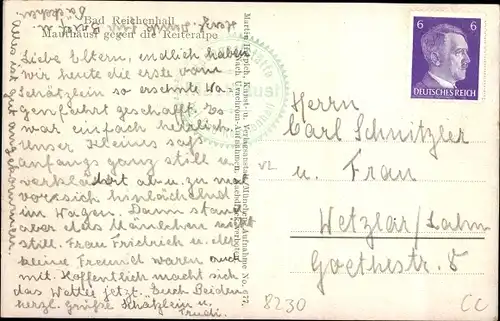 Bad Reichenhall
Mauthäusl gegen die Reiteralpe
Liebe Eltern, endlich haben
wir heute die erste vom
Schätzlein so ersehnte Wa-
genfahrt geschafft. Es
war einfach herzlich.
Unser Kleines saß
anfangs ganz still u.
verklärt ab u. zu mal
vor sich hinlächelnd
im Wagen. Dann stand
aber das Mäulchen nicht
still. Frau Fridrich u.
kleine Freundin waren auch
mit. Hoffentlich macht sich
das Wetter jetzt. Euch Beiden
herzl. Grüße Schätzlein u.
Trudi.
Alles ist gut angekommen.
Martin Herpich, Kunst- u. Verlagsanstalt, München. Aufnahme No. 677.
nach Urachrom-Aufnahmen. Nachbildg. verboten.
6 6
DEUTSCHES REICH
Herrn
Carl Schnitzler
u. Frau
Wetzlar/Lahn
Goethestr. 8
VL
8230
CC